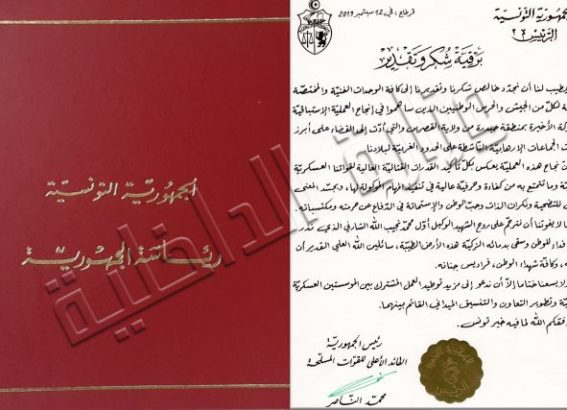 الجمهورية التونسية
رئاسة الجمهورية
وزارة الداخلية
الجمهورية التونسية
الرئيس
قرطاج، في 12 سبتمبر 2019
برقية شكر وتقدير
يطيب لنا أن نجدّد خالص شكرنا وتقديرنا إلى كافة الوحدات الفنيّة والمختصّة
لكلّ من الجيش والحرس الوطنيين الذين ساهموا في إنجاح العمليّة الاستباقيّة
الأخيرة بمنطقة حيدرة من ولاية القصرين والتي أدّت إلى القضاء على أبرز
الجماعات الإرهابيّة الناشطة على الحدود الغربيّة لبلادنا.
نجاح هذه العمليّة يعكس بكلّ تأكيد القدرات القتاليّة العالية لقوّاتنا العسكريّة
وما تتمتع به من كفاءة وحرفيّة عالية في تنفيذ المهام الموكولة لها، ويجسّد المعنى
للتضحية ونكران الذات وحبّ الوطن والاستماتة في الدفاع عن حرمته ومكتسباته.
لا يفوتنا أن نترحّم على روح الشهيد الوكيل أوّل محمّد نجيب الله الشارني الذي
فداء للوطن وسقى بدمائه الزكيّة هذه الأرض الطيّبة، سائلين الله العليّ القدير أن
وكافّة شهداء الوطن، فراديس جنانه.
لا يسعنا ختاما إلاّ أن ندعو إلى مزيد توطيد العمل المشترك بين المؤسستين العسكريّة
وتطوير التعاون والتنسيق الميداني القائم بينهما.
وفقكم الله لما فيه خير تونس.
رئيس الجمهوريّة
القائد الأعلى للقوات المسلّحة
محمّد النّاصر